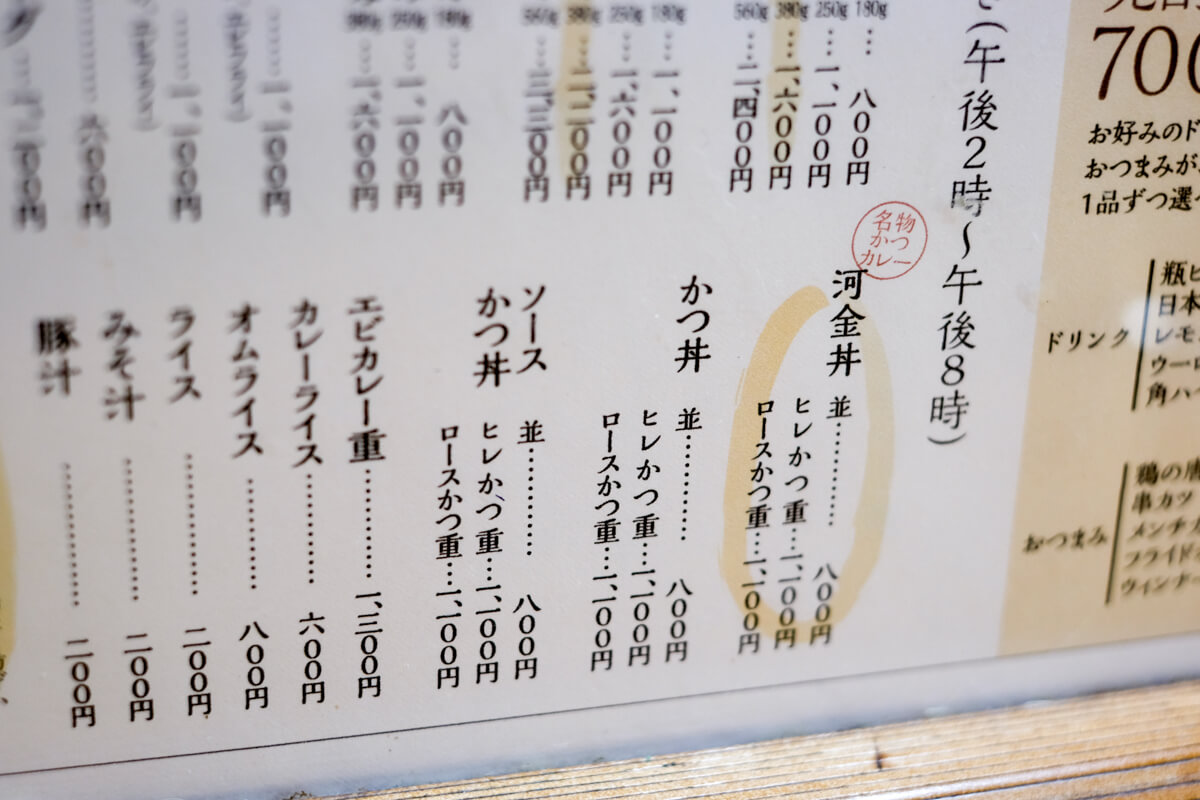 (午後2時〜午後8時)
700
お好みのド
おつまみが
1品ずつ選べ
ドリンク
瓶ビ
日本
レモ
ウーロ
角ハイ
おつまみ
鶏の唐
串カツ
メンチカ
フライド
ウィンナー
180g…八〇〇円
250g…一、一〇〇円
380g…一、六〇〇円
560g…二、四〇〇円
180g…一、一〇〇円
250g…一、六〇〇円
380g…二、二〇〇円
560g…三、三〇〇円
180g…八〇〇円
250g…一、一〇〇円
380g…一、六〇〇円
一、一〇〇円
一、一〇〇円
六〇〇円
名物
かつ
カレー
河金丼
並…………八〇〇円
ヒレかつ重…一、一〇〇円
ロースかつ重…一、一〇〇円
かつ丼
並…………八〇〇円
ヒレかつ重…一、一〇〇円
ロースかつ重…一、一〇〇円
ソース
かつ丼
並…………八〇〇円
ヒレかつ重…一、一〇〇円
ロースかつ重…一、一〇〇円
エビカレー重…………一、三〇〇円
カレーライス…………六〇〇円
オムライス…………八〇〇円
ライス…………二〇〇円
みそ汁…………二〇〇円
豚汁…………二〇〇円